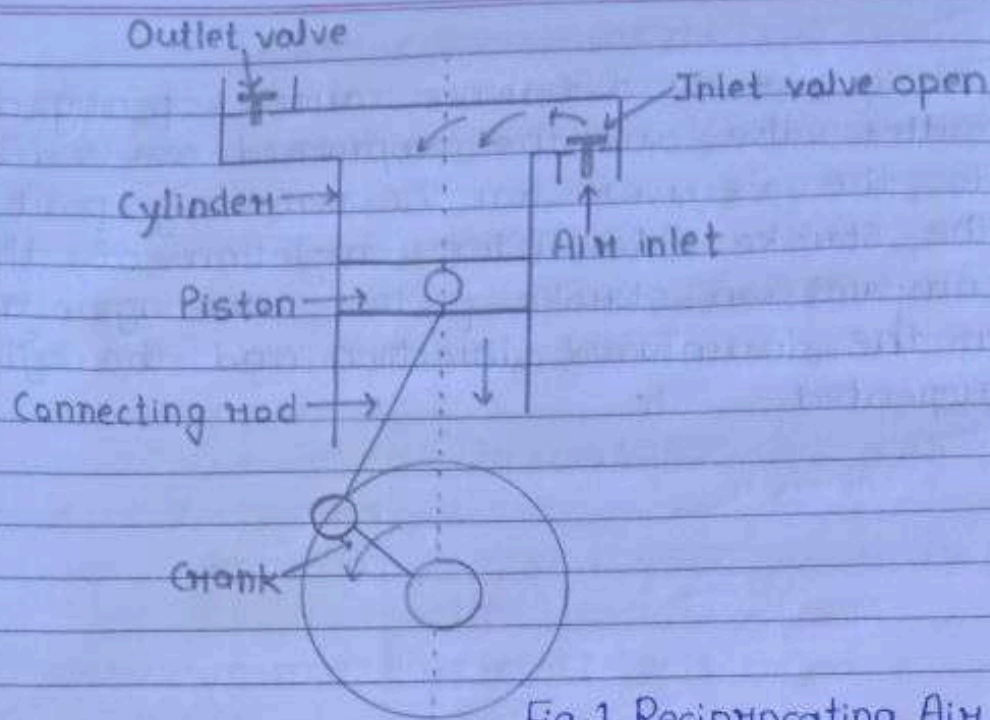 Outlet valve
Inlet valve open
Cylinder
Air inlet
Piston
Connecting rod
Crank
Fig. 1 Reciprocating Air